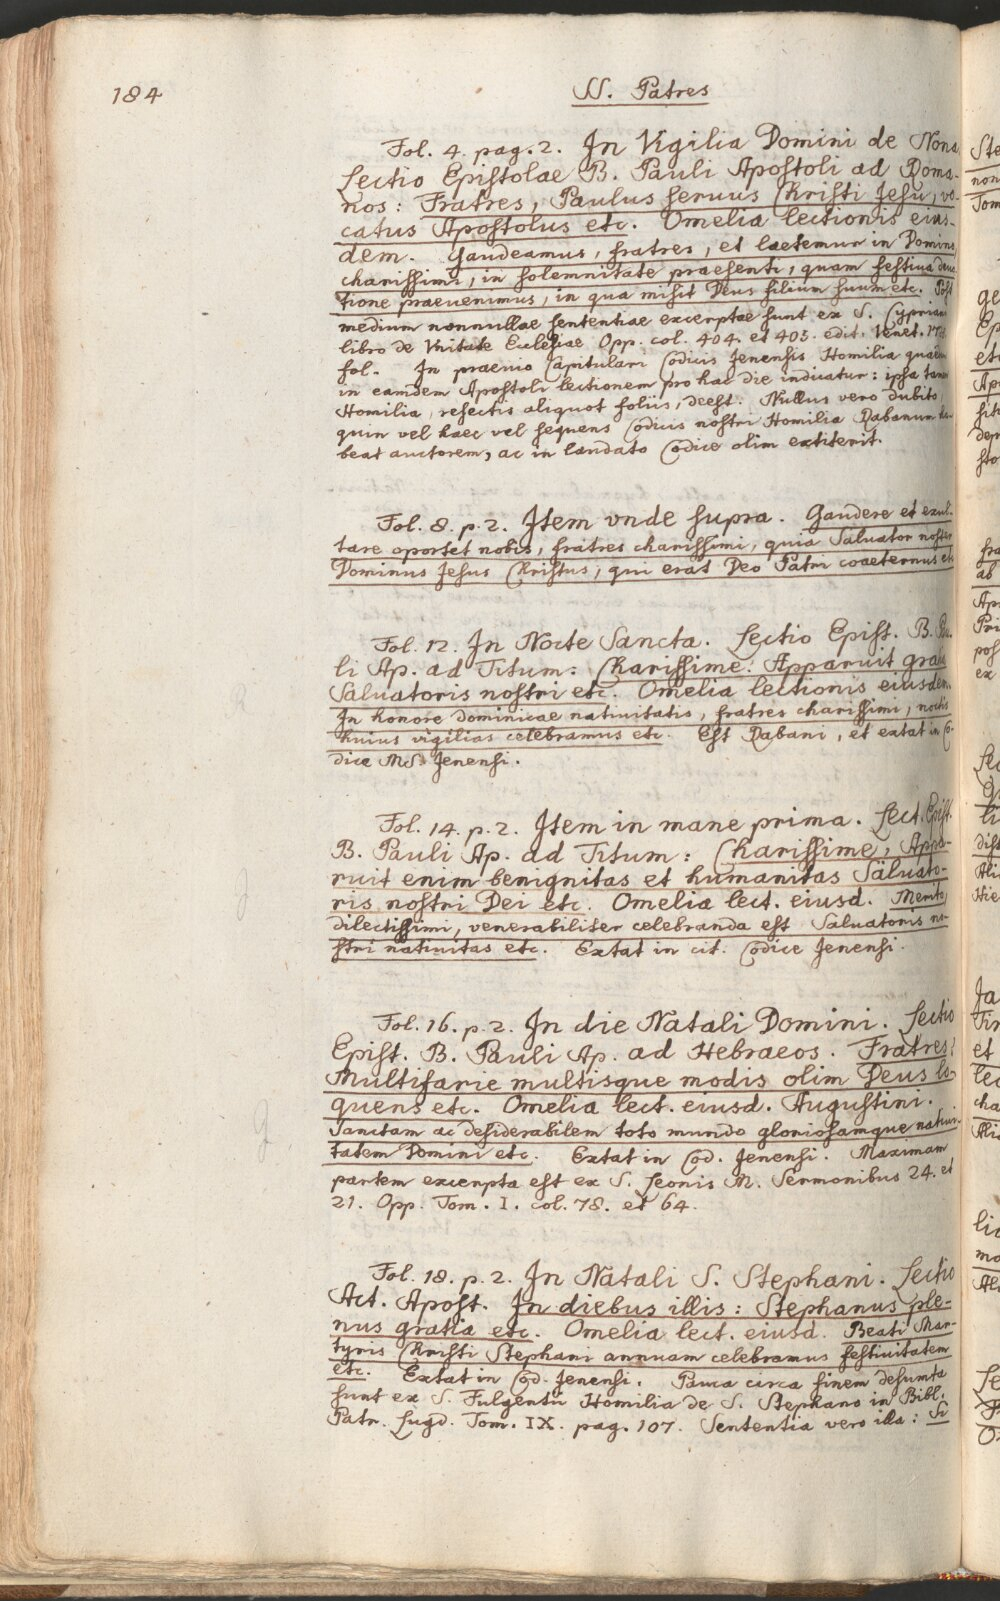 184
SS. Patres
Fol. 4. pag. 2. In Vigilia Domini de Nona
Lectio Epistolae B. Pauli Apostoli ad Roma-
nos: Fratres, Paulus seruus Christi Jesu, vo-
catus Apostolus etc. Omelia lectionis eius-
dem. Gaudeamus, fratres, et laetemur in Domino
charissimi, in solemnitate praesenti, quam festiua deuo
tione praeuenimus, in qua misit Deus filium suum etc. Post
medium nonnullae sententiae excerptae sunt ex S. Cypriani
libro de Vnitate Ecclesiae Opp. col. 404. et 403. edit. Venet.
fol. In praeuio Capitulari Codicis Jenensis Homilia quaedam
in eamdem Apostoli lectionem pro hac die indicatur: ipsa tamen
Homilia, resectis aliquot foliis, deest. Nullus vero dubito,
quin vel haec vel sequens Codicis nostri Homilia Rabanum ha-
beat auctorem, ac in laudato Codice olim extiterit.
Fol. 8. p. 2. Item vnde supra. Gaudere et exul-
tare oportet nobis, fratres charissimi, quia Saluator noster
Dominus Jesus Christus, qui erat Deo Patri coaeternus etc
Fol. 12. In Nocte Sancta. Lectio Epist. B. Pau-
li Ap. ad Titum: Charissime! Apparuit gratia
Saluatoris nostri etc. Omelia lectionis eiusdem.
In honore dominicae natiuitatis, fratres charissimi, noctis
huius vigilias celebramus etc. Est Rabani, et extat in Co-
dice MS. Jenensi.
Fol. 14. p. 2. Item in mane prima. Lect. Epist.
B. Pauli Ap. ad Titum: Charissime, Appa-
ruit enim benignitas et humanitas Saluato-
ris nostri Dei etc. Omelia lect. eiusd. Merito
dilectissimi, venerabiliter celebranda est Saluatoris no-
stri natiuitas etc. Extat in cit. Codice Jenensi.
Fol. 16. p. 2. In die Natali Domini. Lectio
Epist. B. Pauli Ap. ad Hebraeos. Fratres!
Multifarie multisque modis olim Deus lo-
quens etc. Omelia lect. eiusd. Augustini.
Sanctam ac desiderabilem toto mundo gloriosamque natiui-
tatem Domini etc. Extat in Cod. Jenensi. Maximam
partem excerpta est ex S. Leonis M. Sermonibus 24. et
21. Opp. Tom. I. col. 78. et 64.
Fol. 18. p. 2. In Natali S. Stephani. Lectio
Act. Apost. In diebus illis: Stephanus ple-
nus gratia etc. Omelia lect. eiusd. Beati Mar-
tyris Christi Stephani annuam celebramus festiuitatem
etc. Extat in Cod. Jenensi. Pauca circa finem desumta
sunt ex S. Fulgentii Homilia de S. Stephano in Bibl.
Patr. Lugd. Tom. IX. pag. 107. Sententia vero illa: Si